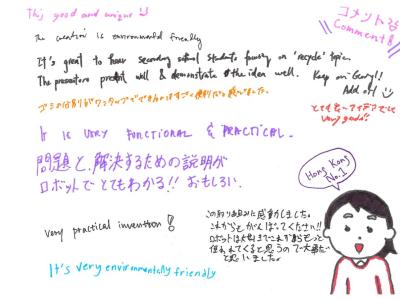 This good and unique
コメント
Comments
The creation is environmental friendly
It's great to have secondary school students focusing on "recycle" topic.
The presenters present well & demonstrate the idea well. Keep on
Add oil
ゴミの分別がワンタップでできるのはすごく便利だと思いました。
とても良いアイデアです
Very good!!
It is VERY FUNCTIONAL & PRACTICAL.
問題と、解決するための説明が
ロボットでとてもわかる!! おもしろい。
Hong Kong
No.1
very practical invention!
この取り組みに感動しました。
これからもがんばってください!!
ロボットは
使われてくると思うので大事だ
と思いました。
It's very environmentally friendly